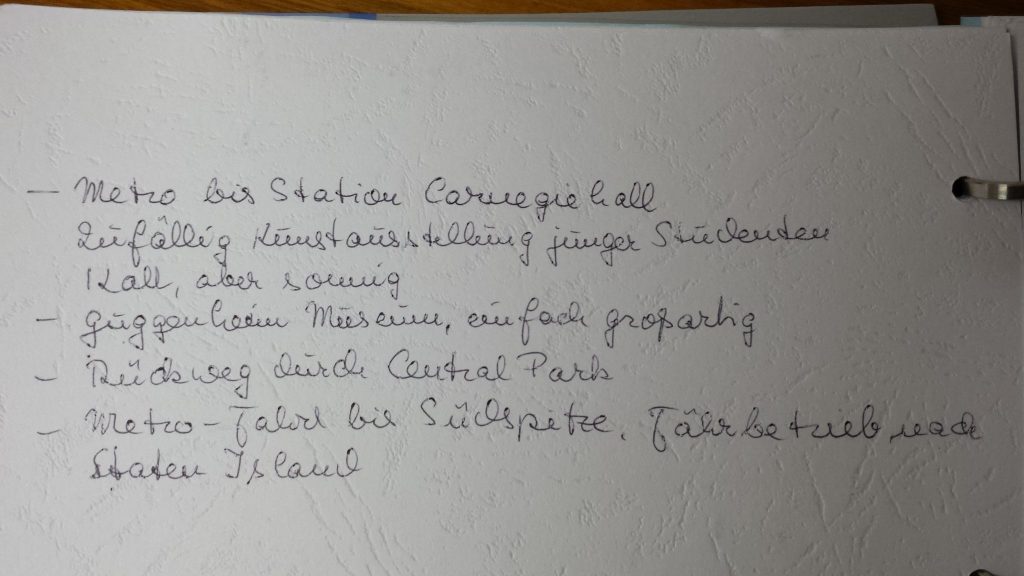 – Metro bis Station Carnegiehall
Zufällig Kunstausstellung junger Studenten
Kalt, aber sonnig
– Guggenheim Museum, einfach großartig
– Rückweg durch Central Park
– Metro-Fahrt bis Südspitze, Fährbetrieb nach
Staten Island